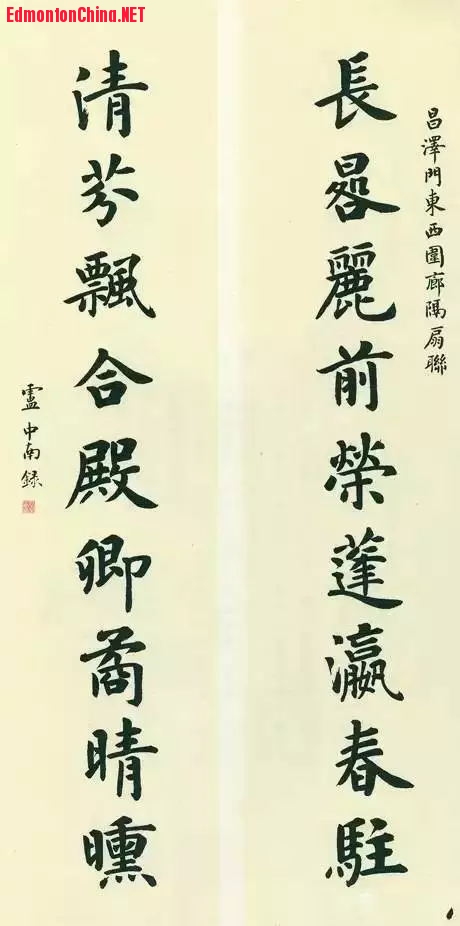 EdmontonChina.NET
昌澤門東西圍廊隔扇聯
長晷麗前榮蓬瀛春駐
清芬飄合殿卿矞晴曛
盧中南録